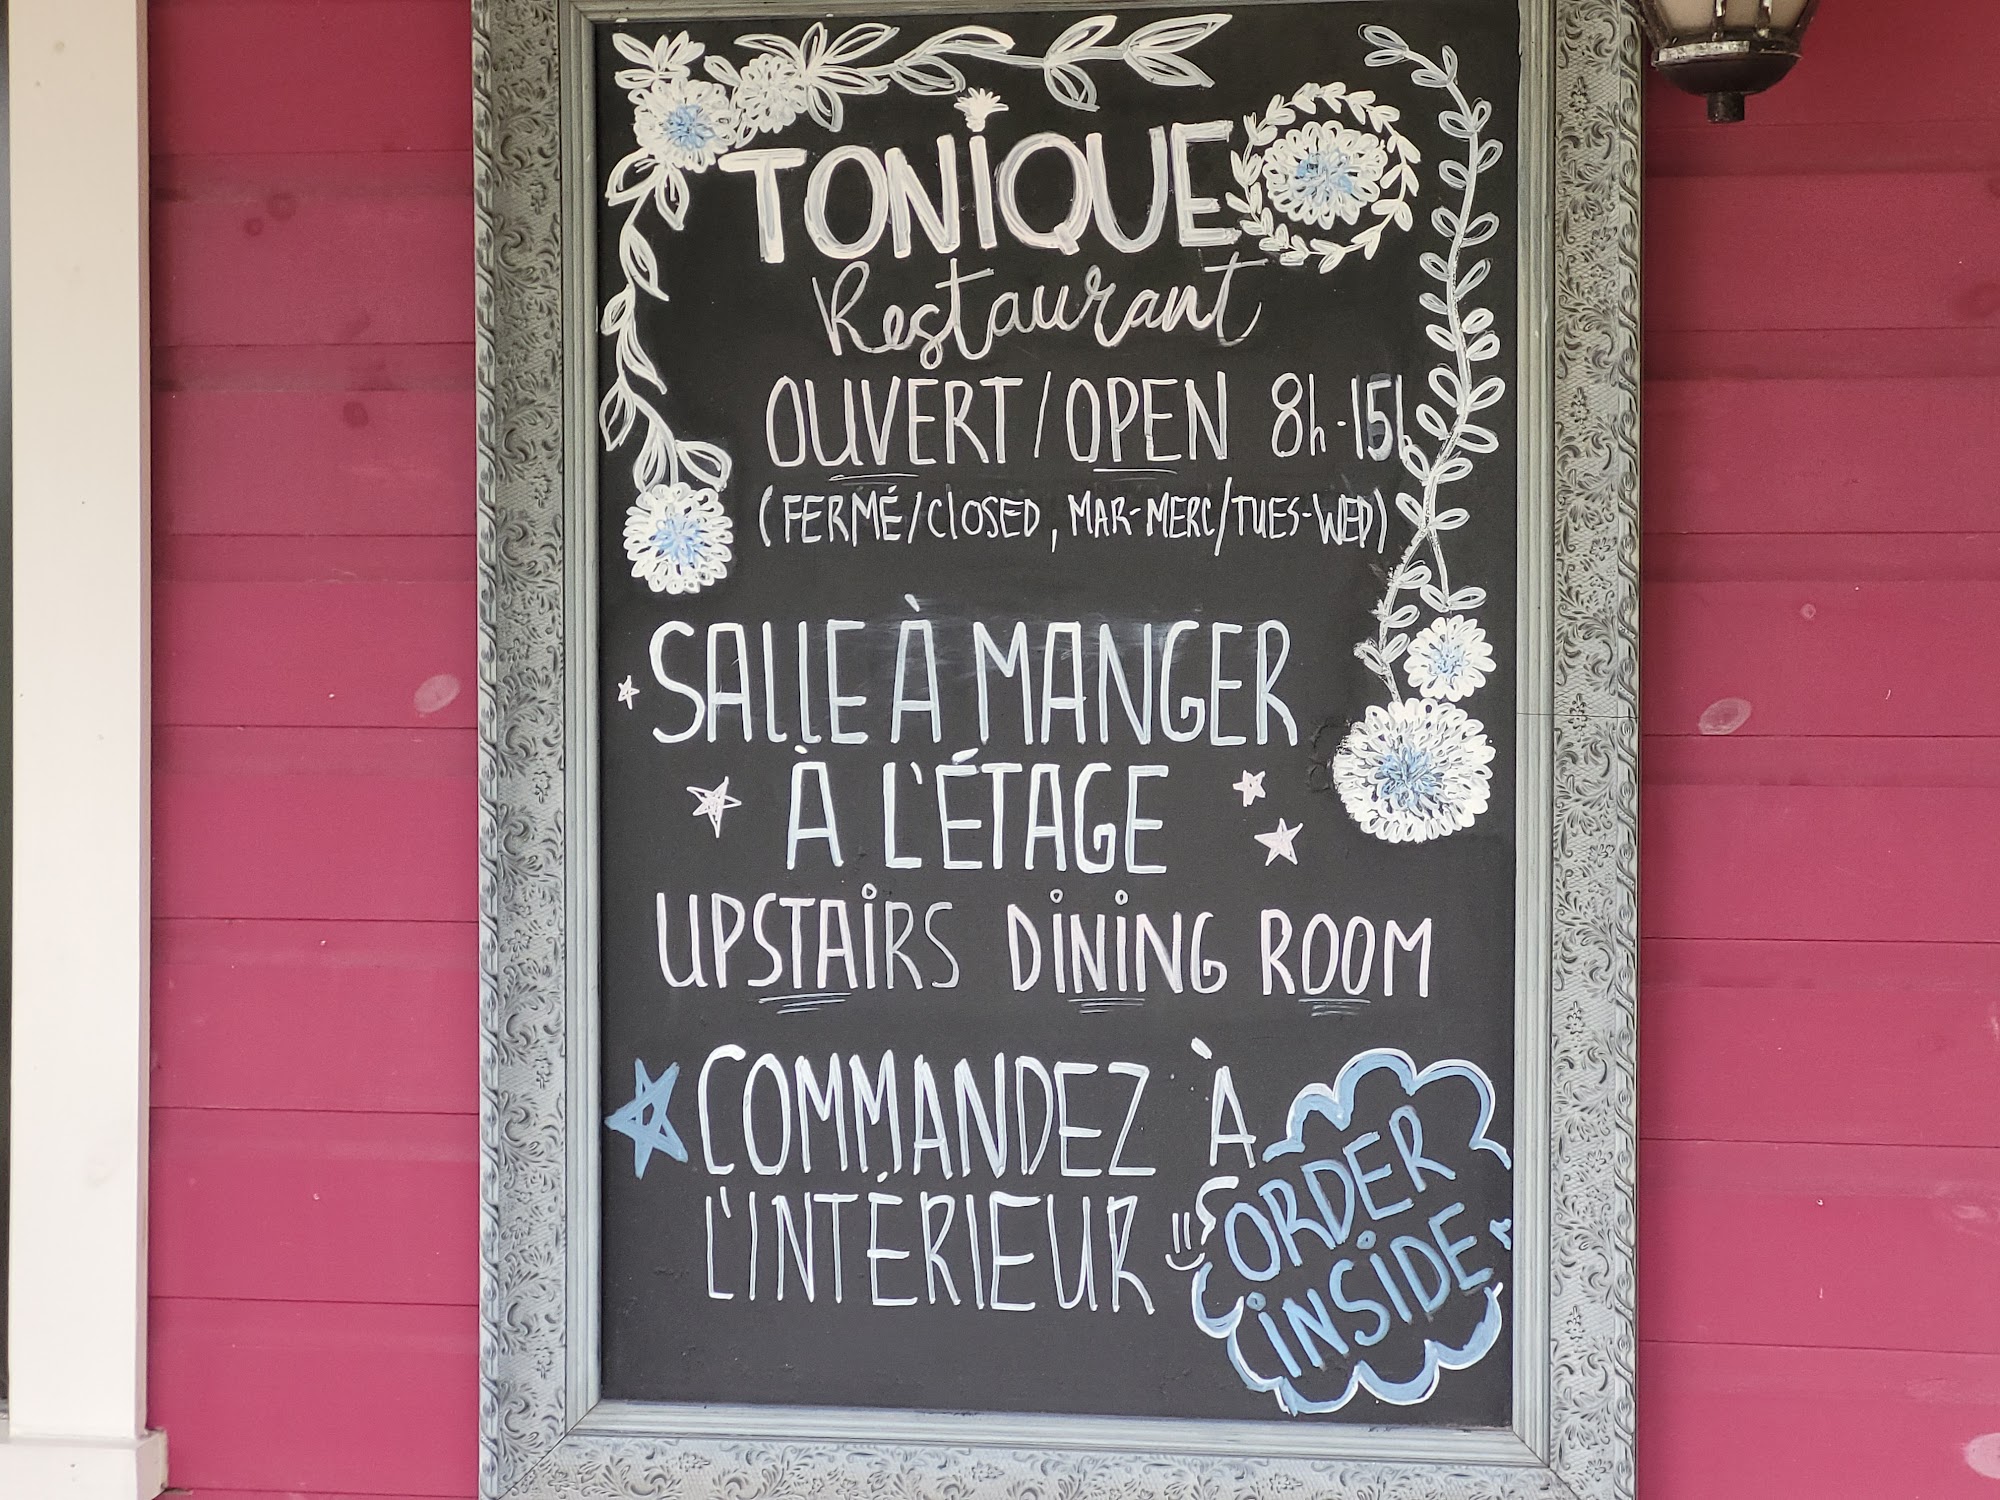 TONIQUE
Restaurant
OUVERT/OPEN 8h-15h
(FERMÉ/CLOSED, MAR-MERC/TUES-WED)
SALLE À MANGER
À L'ÉTAGE
UPSTAIRS DINING ROOM
COMMANDEZ À
L'INTÉRIEUR
ORDER
INSIDE